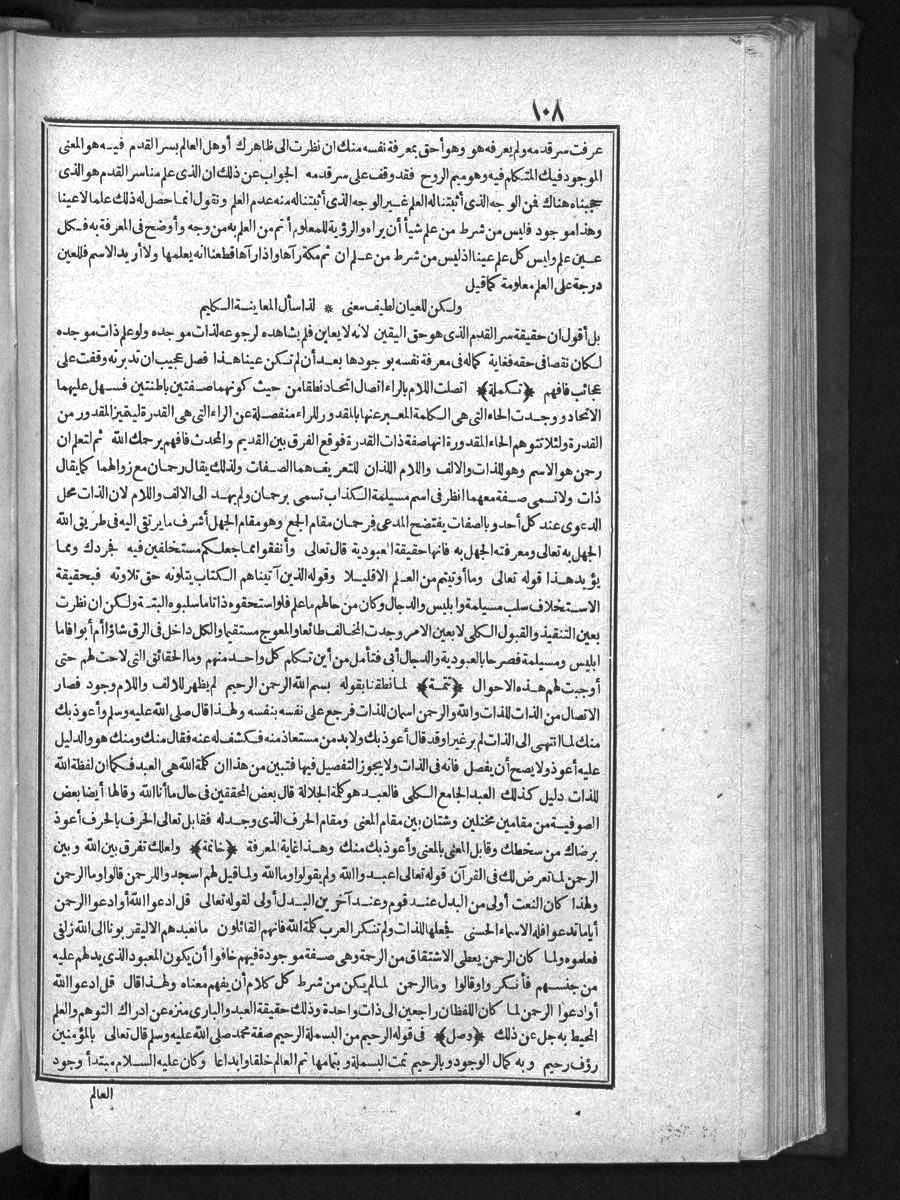 ١٠٨
عرفت سر قدمه ولم يعرفه هو وهو أحق بمعرفة نفسه منك ان نظرت الى ظاهرك أوهل العالم بسر القدم فيه هو المعنى
الموجود فيك المتكلم فيه وهو ميم الروح فقد وقف على سر قدمه الجواب عن ذلك ان الذى علم منا سر القدم هو الذى
حجبناه هناك فمن الوجه الذى أثبتنا له العلم غير الوجه الذى أثبتنا له منه عدم العلم ونقول انما حصل له ذلك علما لا عينا
وهذا موجود فليس من شرط من علم شيأ أن يراه والرؤية للمعلوم أتم من العلم به من وجه وأوضح فى المعرفة به فكل
عين علم وليس كل علم عينا اذ ليس من شرط من علم ان ثم مكة رآها واذا رآها قطعنا انه يعلمها ولا أريد الاسم فللعين
درجة على العلم معلومة كما قيل
ولكن للعيان لطيف معنى * لذا سأل المعاينة الكليم
بل أقول ان حقيقة سر القدم الذى هو حق اليقين لانه لا يعاين فلم يشاهده لرجوعه لذات موجده ولو علم ذات موجده
لكان نقصا فى حقه فغاية كماله فى معرفة نفسه بوجودها بعد أن لم تكن عينا هذا فصل عجيب ان تدبرته وقفت على
عجائب فافهم ﴿تكملة﴾ اتصلت اللام بالراء اتصال اتحاد نطقا من حيث كونهما صفتين باطنتين فسهل عليهما
الاتحاد ووجدت الحاء التى هى الكلمة المعبر عنها بالمقدور للراء منفصلة عن الراء التى هى القدرة ليتميز المقدور من
القدرة ولئلا تتوهم الحاء المقدورة انها صفة ذات القدرة فوقع الفرق بين القديم والمحدث فافهم يرحمك الله ثم لتعلم ان
رحمن هو الاسم وهو للذات والالف واللام اللذان للتعريف هما الصفات ولذلك يقال رحمان مع زوالهما كما يقال
ذات ولا تسمى صفة معهما انظر فى اسم مسيلمة الكذاب تسمى برحمان ولم يهد الى الالف واللام لان الذات محل
الدعوى عند كل أحد وبالصفات يفتضح المدعى فرحمان مقام الجمع وهو مقام الجهل أشرف ما يرتقى اليه فى طريق الله
الجهل به تعالى ومعرفته الجهل به فانها حقيقة العبودية قال تعالى وأنفقوا مما جعلكم مستخلفين فيه فجردك ومما
يؤيد هذا قوله تعالى وما أوتيتم من العلم الا قليلا وقوله الذين آتيناهم الكتاب يتلونه حق تلاوته فبحقيقة
الاستخلاف سلب مسيلمة وابليس والدجال وكان من حالهم ما علم فلو استحقوه ذاتا ما سلبوه البتة ولكن ان نظرت
بعين التنفيذ والقبول الكلى لا بعين الامر وجدت المخالف طائعا والمعوج مستقيما والكل داخل فى الرق شاؤا أم أبوا فاما
ابليس ومسيلمة فصرحا بالعبودية والدجال أبى فتأمل من أين تكلم كل واحد منهم وما الحقائق التى لاحت لهم حتى
أوجبت لهم هذه الاحوال ﴿تتمة﴾ لما نطقنا بقوله بسم الله الرحمن الرحيم لم يظهر للالف واللام وجود فصار
الاتصال من الذات للذات والله والرحمن اسمان للذات فرجع على نفسه بنفسه ولهذا قال صلى الله عليه وسلم وأعوذ بك
منك لما انتهى الى الذات لم ير غيرا وقد قال أعوذ بك ولا بد من مستعاذ منه فكشف له عنه فقال منك ومنك هو والدليل
عليه أعوذ ولا يصح أن يفصل فانه فى الذات ولا يجوز التفصيل فيها فتبين من هذا ان كلمة الله هى العبد فكما ان لفظة الله
للذات دليل كذلك العبد الجامع الكلى فالعبد هو كلمة الجلالة قال بعض المحققين فى حال ما أنا الله وقالها أيضا بعض
الصوفية من مقامين مختلفين وشتان بين مقام المعنى ومقام الحرف الذى وجد له فقابل تعالى الحرف بالحرف أعوذ
برضاك من سخطك وقابل المعنى بالمعنى وأعوذ بك منك وهذا غاية المعرفة ﴿خاتمة﴾ ولعلك تفرق بين الله وبين
الرحمن لما تعرض لك فى القرآن قوله تعالى اعبدوا الله ولم يقولوا وما الله ولما قيل لهم اسجدوا للرحمن قالوا وما الرحمن
ولهذا كان النعت أولى من البدل عند قوم وعند آخرين البدل أولى لقوله تعالى قل ادعوا الله أو ادعوا الرحمن
أيا ما تدعوا فله الاسماء الحسنى فجعلها للذات ولم تنكر العرب كلمة الله فانهم القائلون ما نعبدهم الا ليقربونا الى الله زلفى
فعلموه ولما كان الرحمن يعطى الاشتقاق من الرحمة وهى صفة موجودة فيهم خافوا أن يكون المعبود الذى يدلهم عليه
من جنسهم فأنكروا وقالوا وما الرحمن لما لم يكن من شرط كل كلام أن يفهم معناه ولهذا قال قل ادعوا الله
أو ادعوا الرحمن لما كان اللفظان راجعين الى ذات واحدة وذلك حقيقة العبد والبارى منزه عن ادراك التوهم والعلم
المحيط به جل عن ذلك ﴿وصل﴾ فى قوله الرحيم من البسملة الرحيم صفة محمد صلى الله عليه وسلم قال تعالى بالمؤمنين
رؤف رحيم وبه كمال الوجود وبالرحيم تمت البسملة وبتمامها تم العالم خلقا وابداعا وكان عليه السلام مبتدأ وجود
العالم